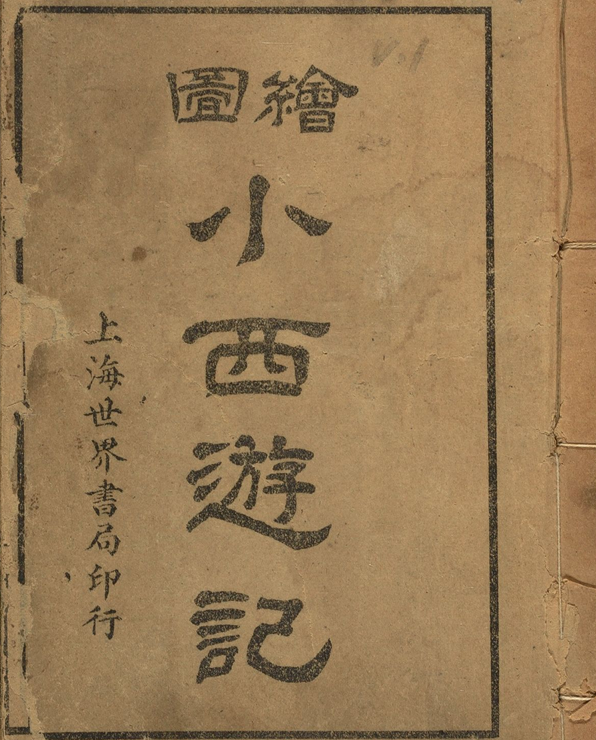 V.1
繪圖
小西遊記
上海世界書局印行